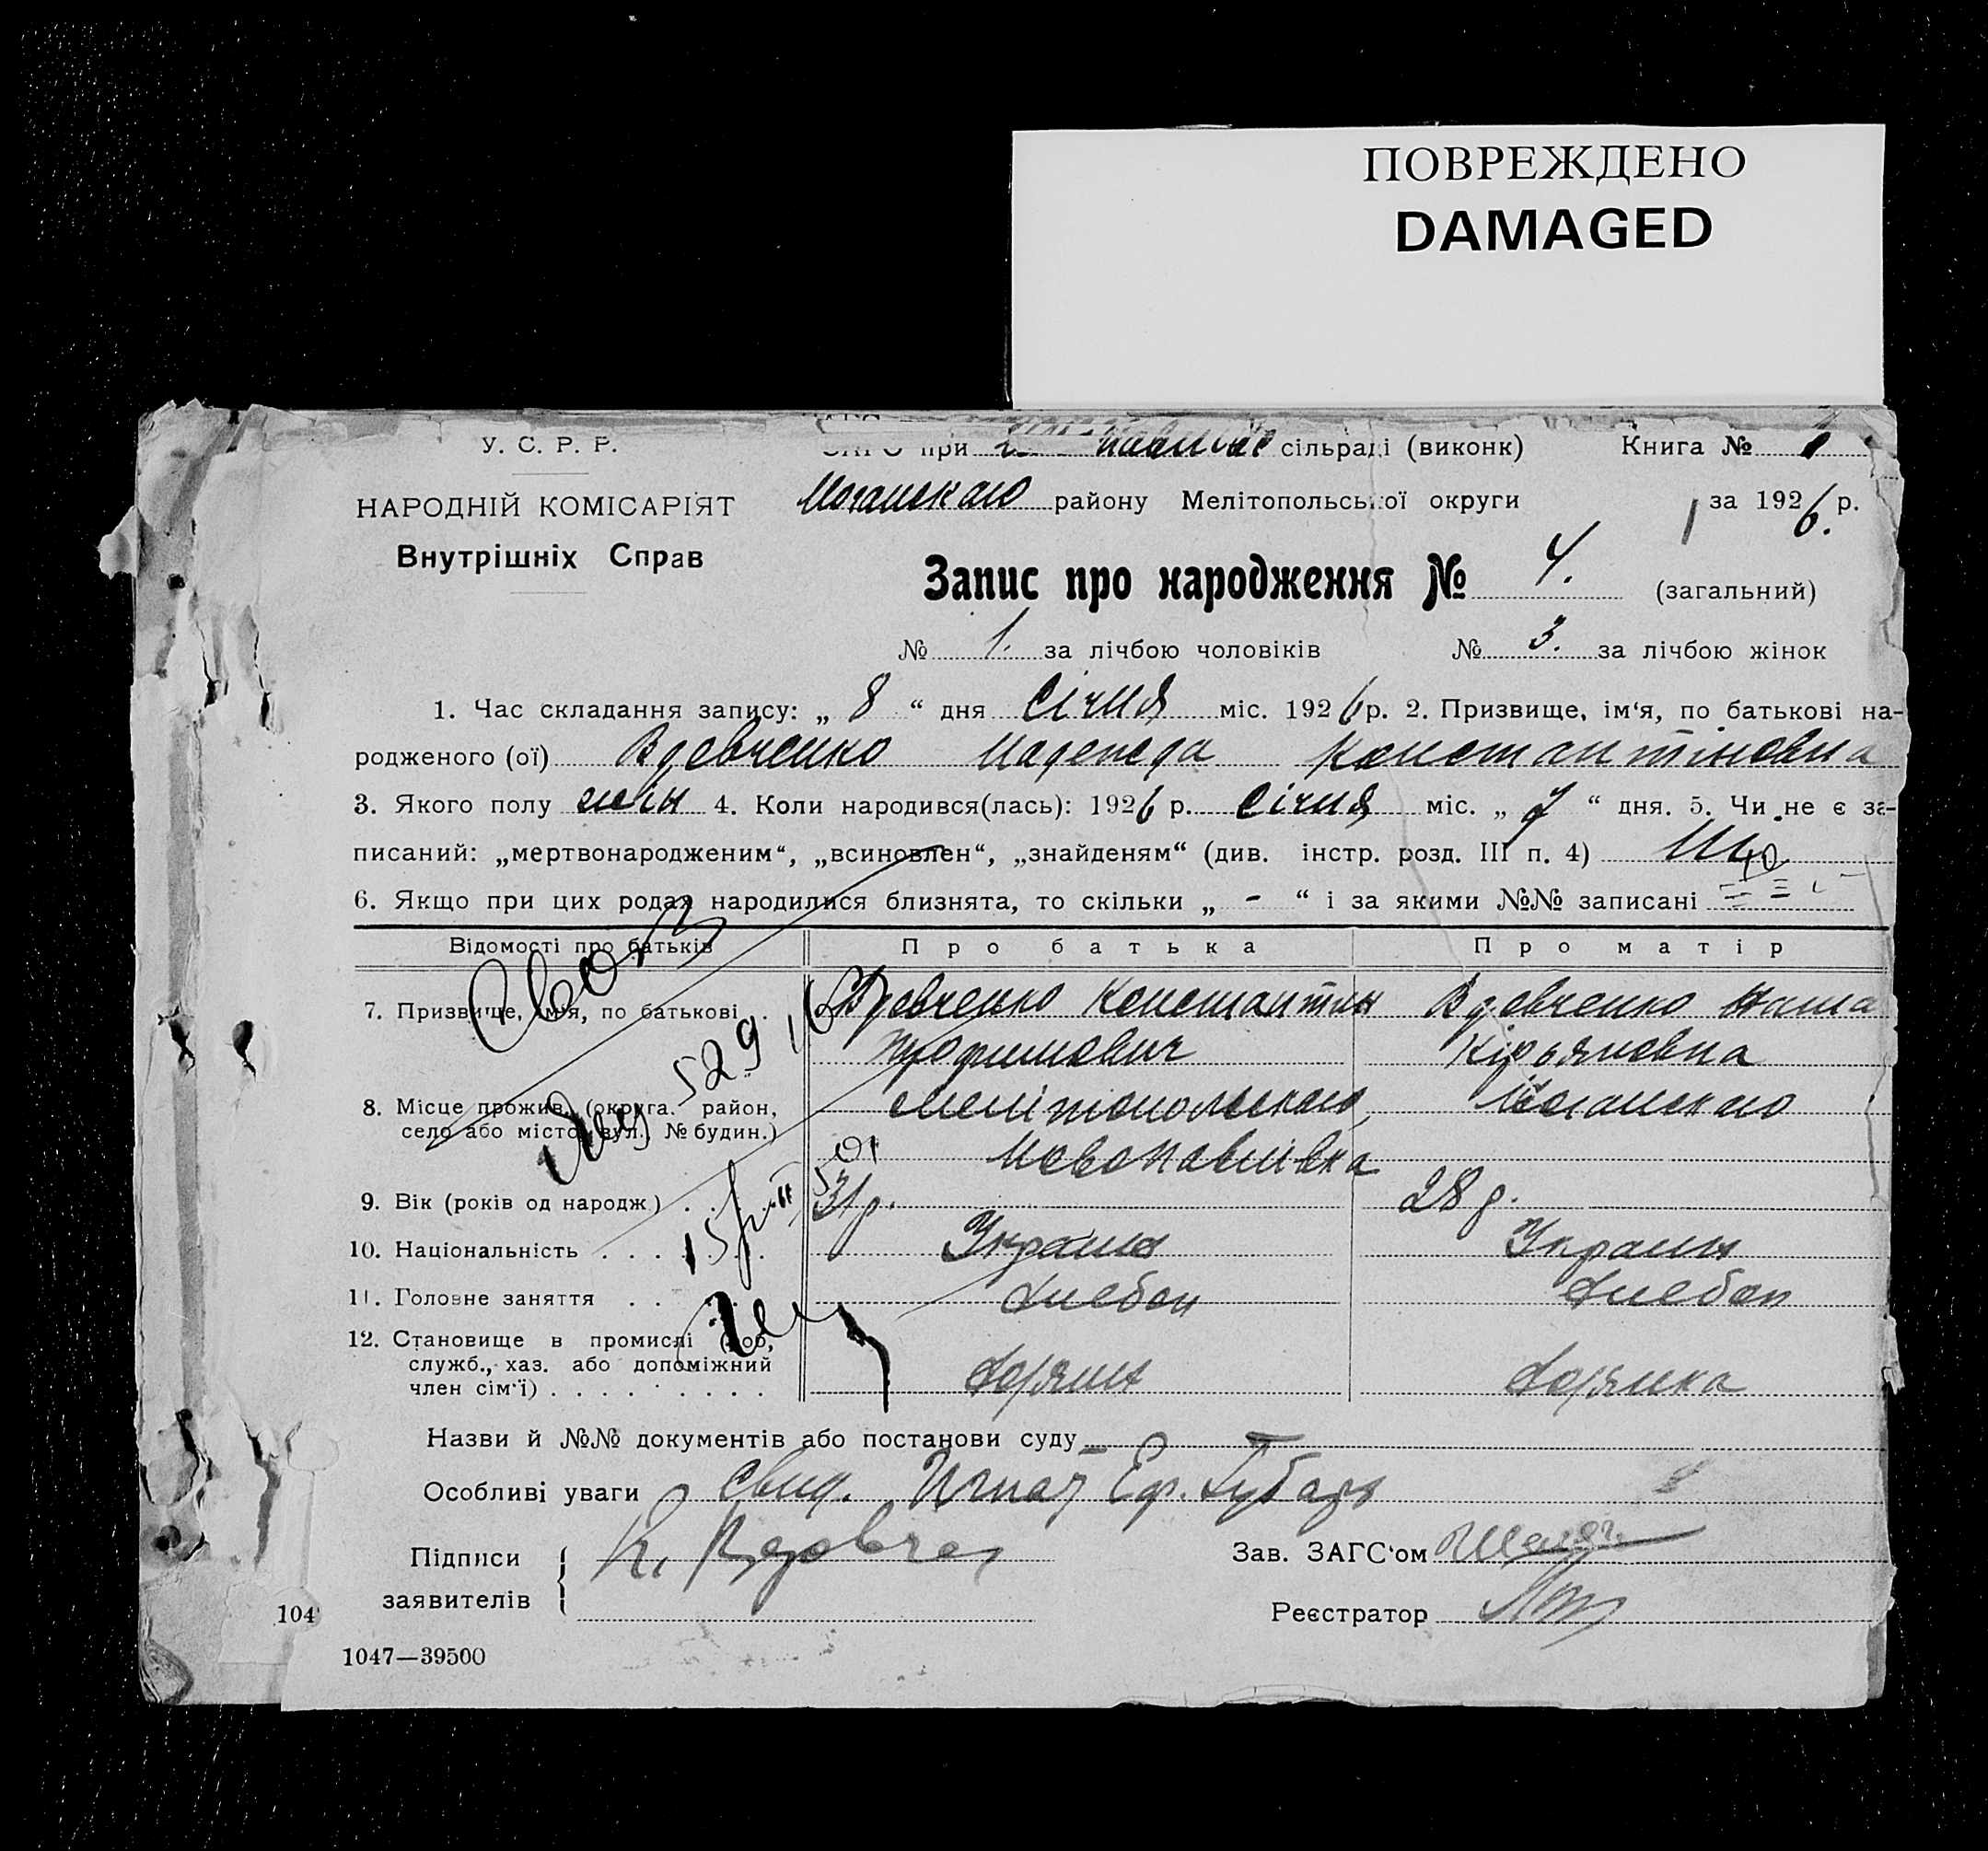 ПОВРЕЖДЕНО
DAMAGED
У. С. Р. Р.
при сільраді (виконк) Книга № 1
НАРОДНІЙ КОМІСАРІЯТ
району Мелітопольської округи за 1926 р.
Внутрішніх Справ
Запис про народження № 4. (загальний)
№ 1. за лічбою чоловіків № 3. за лічбою жінок
1. Час складання запису: „ 8 “ дня Січня міс. 1926 р. 2. Призвище, ім‘я, по батькові на-
родженого (ої) Вдевченко Надежда Константіновна
3. Якого полу жін 4. Коли народився(лась): 1926 р. Січня міс. „ 7 “ дня. 5. Чи не є за-
писаний: „мертвонародженим“, „всиновлен“, „знайденям“ (див. інстр. розд. III п. 4)
6. Якщо при цих родах народилися близнята, то скільки „ - “ і за якими №№ записані
Відомості про батьків Про батька Про матір
7. Призвище, ім‘я, по батькові . Вдевченко Константин Вдевченко
Трофимович Кірьяновна
8. Місце прожив. (округа. район, Мелітопольского,
село або місто, вул., № будин.)
Новопавлівка
9. Вік (років од народж) 31 р. 28 р.
10. Національність Украин Украин
11. Головне заняття Хлебоп Хлебоп
12. Становище в промислі (роб,
служб., хаз. або допоміжний
член сім‘ї) Хозяин Хозяйка
Назви й №№ документів або постанови суду —
Особливі уваги Свид. Игнат Еф.
Підписи К. Вдовчен Зав. ЗАГС‘ом
заявителів
Реєстратор
104
1047—39500
529